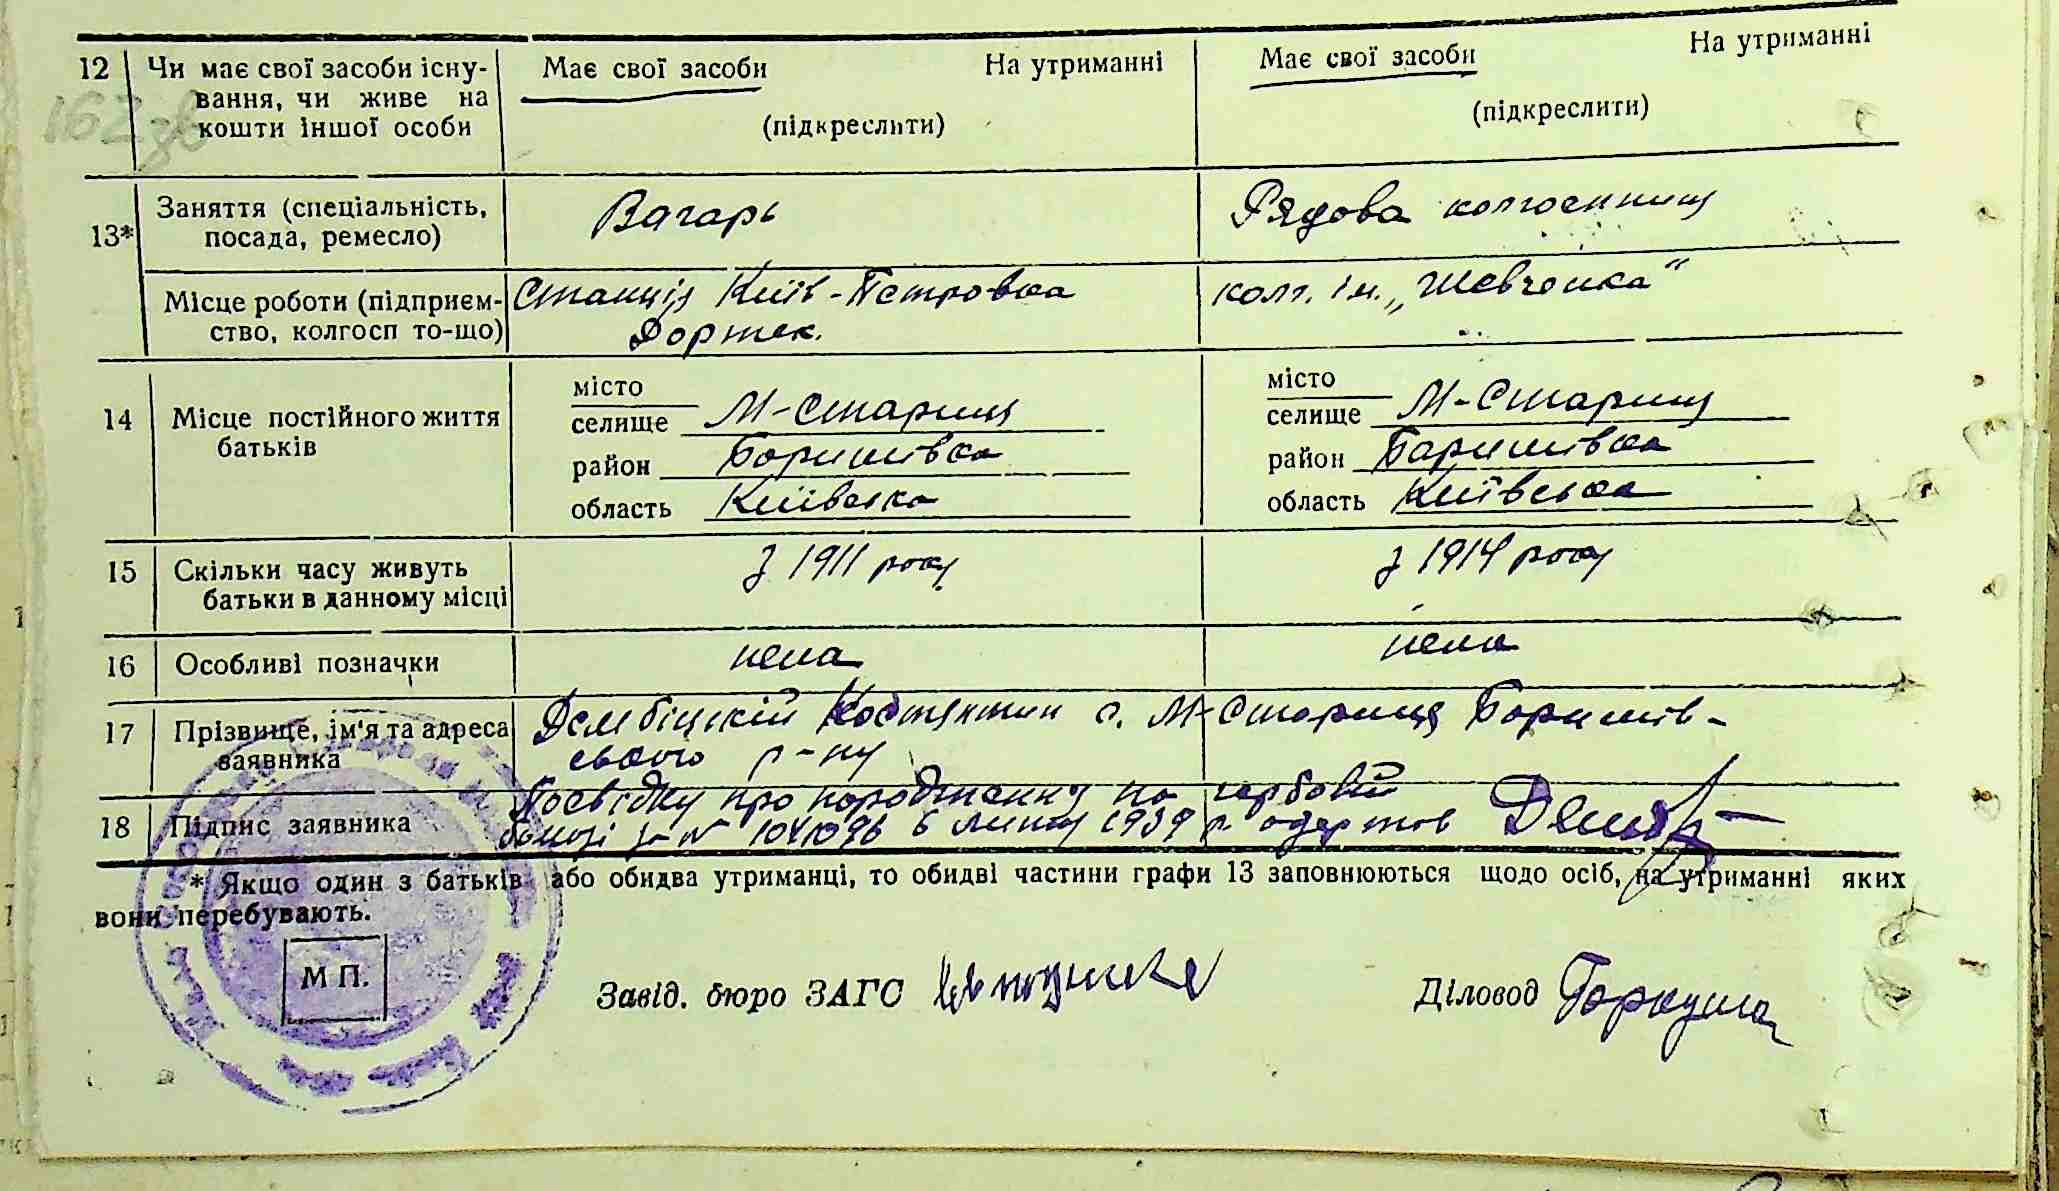 12 Чи має свої засоби існу- Має свої засоби На утриманні Має свої засоби На утриманні
вання, чи живе на
кошти іншої особи (підкреслити) (підкреслити)
162 зв
13* Заняття (спеціальність, Вагарь Рядова колгоспниця
посада, ремесло)
Місце роботи (підприєм- Станція Київ-Петровка колг. ім. „Шевченка"
ство, колгосп то-що) Дортех.
14 Місце постійного життя батьків
місто місто
селище М-Стариця селище М-Стариця
район Баришівка район Баришівка
область Київська область Київська
15 Скільки часу живуть з 1911 року з 1914 року
батьки в данному місці
16 Особливі позначки нема нема
17 Прізвище, ім'я та адреса Дембіцкій Костянтин с. М-Стариця Баришів-
заявника ського р-ну
Посвідку про народження на гербовій
18 Підпис заявника бомазі за № 1041096 6 липня 1939 р. одержав
* Якщо один з батьків або обидва утриманці, то обидві частини графи 13 заповнюються щодо осіб, на утриманні яких
вони перебувають.
М П.
Завід. бюро ЗАГС Діловод Гаркуша